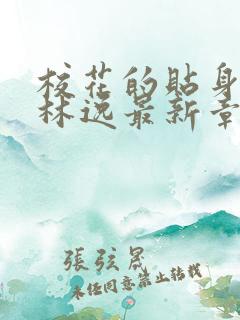 校花的贴身
林逸最新章
張弦晟
未经同意禁止转载